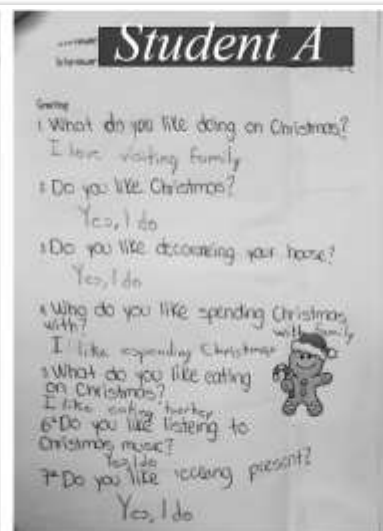 Student A
1 What do you like doing on Christmas?
I love visiting family
2 Do you like Christmas?
Yes, I do
3 Do you like decorating your house?
Yes, I do
4 Who do you like spending Christmas
with?
with family
I like espending Christmas
5 What do you like eating
on Christmas?
I like eating turkey
6ª Do you like listeing to
Christmas music?
Yes, I do
7ª Do you like present?
Yes, I do